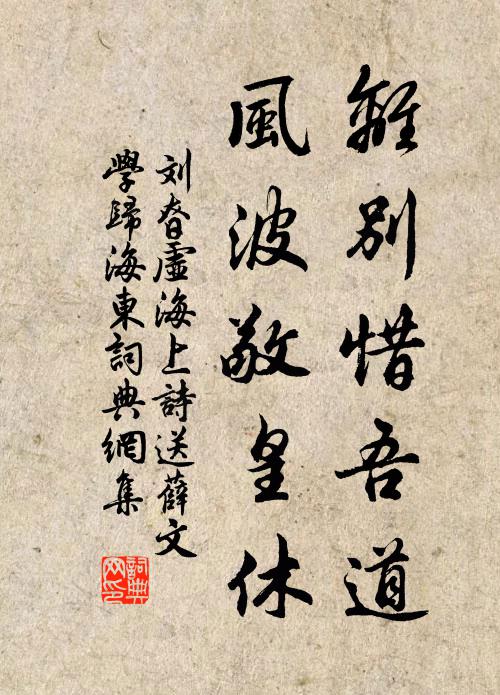 離別惜吾道
風波敬皇休
刘昚虛海上詩送薛文
學歸海東詞典網集
詞典網印